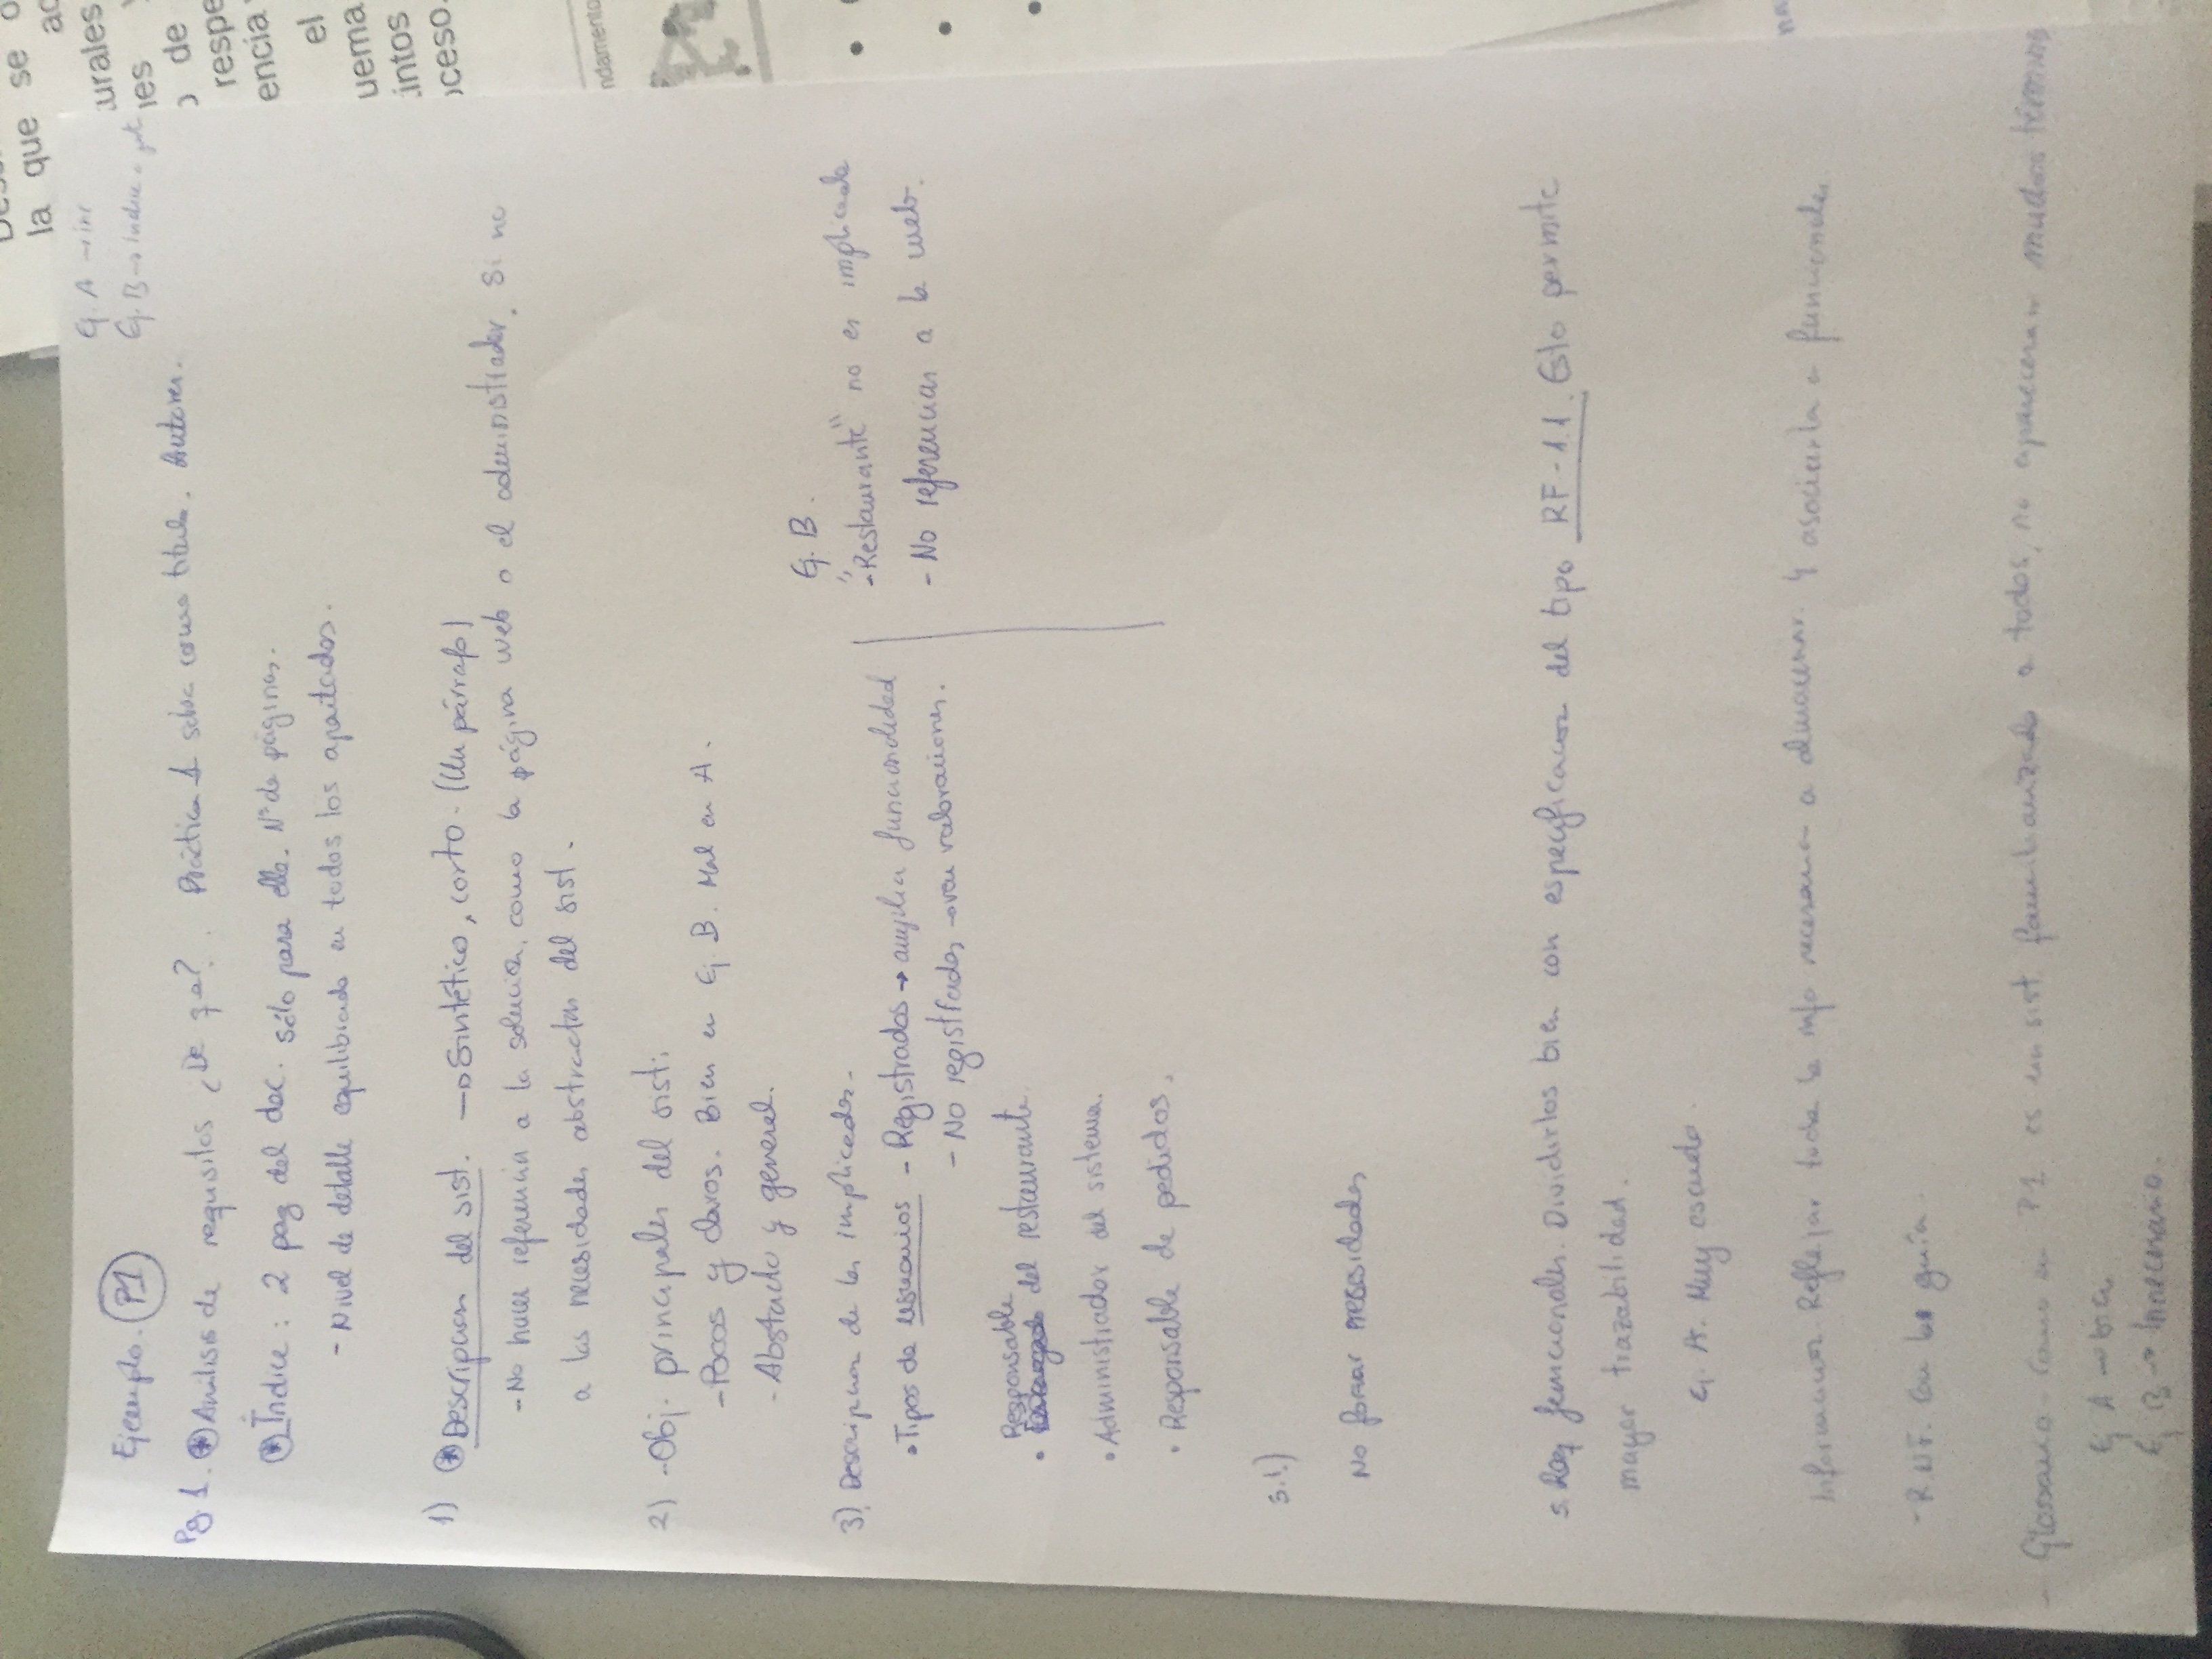 Ejemplo. P1
Ej. A →
Ej. B → índice
Pg 1. * Análisis de requisitos ¿De qe? . Práctica 1 sobra como título. Autores.
* Índice : 2 pag del doc. sólo para ello. Nº de páginas.
- Nivel de detalle equilibrado en todos los apartados.
1) * Descripcion del sist. → Sintético, corto. (Un párrafo)
- No hacer referencia a la solución, como la página web o el administrador. Si no
a las necesidades abstractas del sist.
2) - Obj. principales del sist:
- Pocos y claros. Bien en Ej. B. Mal en A.
- Abstacto y general.
3) Descripcion de los implicados.
• Tipos de usuarios - Registrados → amplia funcionalidad
- No registrados → ven valoraciones.
Responsable
• del restaurante
• Administrador del sistema.
• Responsable de pedidos.
Ej. B.
- "Restaurante" no es implicado
- No referencias a la web.
3.1.)
No forzar necesidades
5. Req funcionales. Dividirlos bien con especificacion del tipo RF-1.1. Esto permite
mayor trazabilidad.
Ej. A. Muy escueto.
Informacion. Reflejar toda la info necesaria a almacenar. Y asociarla a funcionales
- R.N.F. Con la guía.
- Glossario - Como en P1 es un sist. familiarizado a todos, no apareceran muchos términos
Ej A → bien
Ej B → Innecesario.
la que se
urales
nes
o de
respe
encia
el
uema
intos
oceso.
ndamento